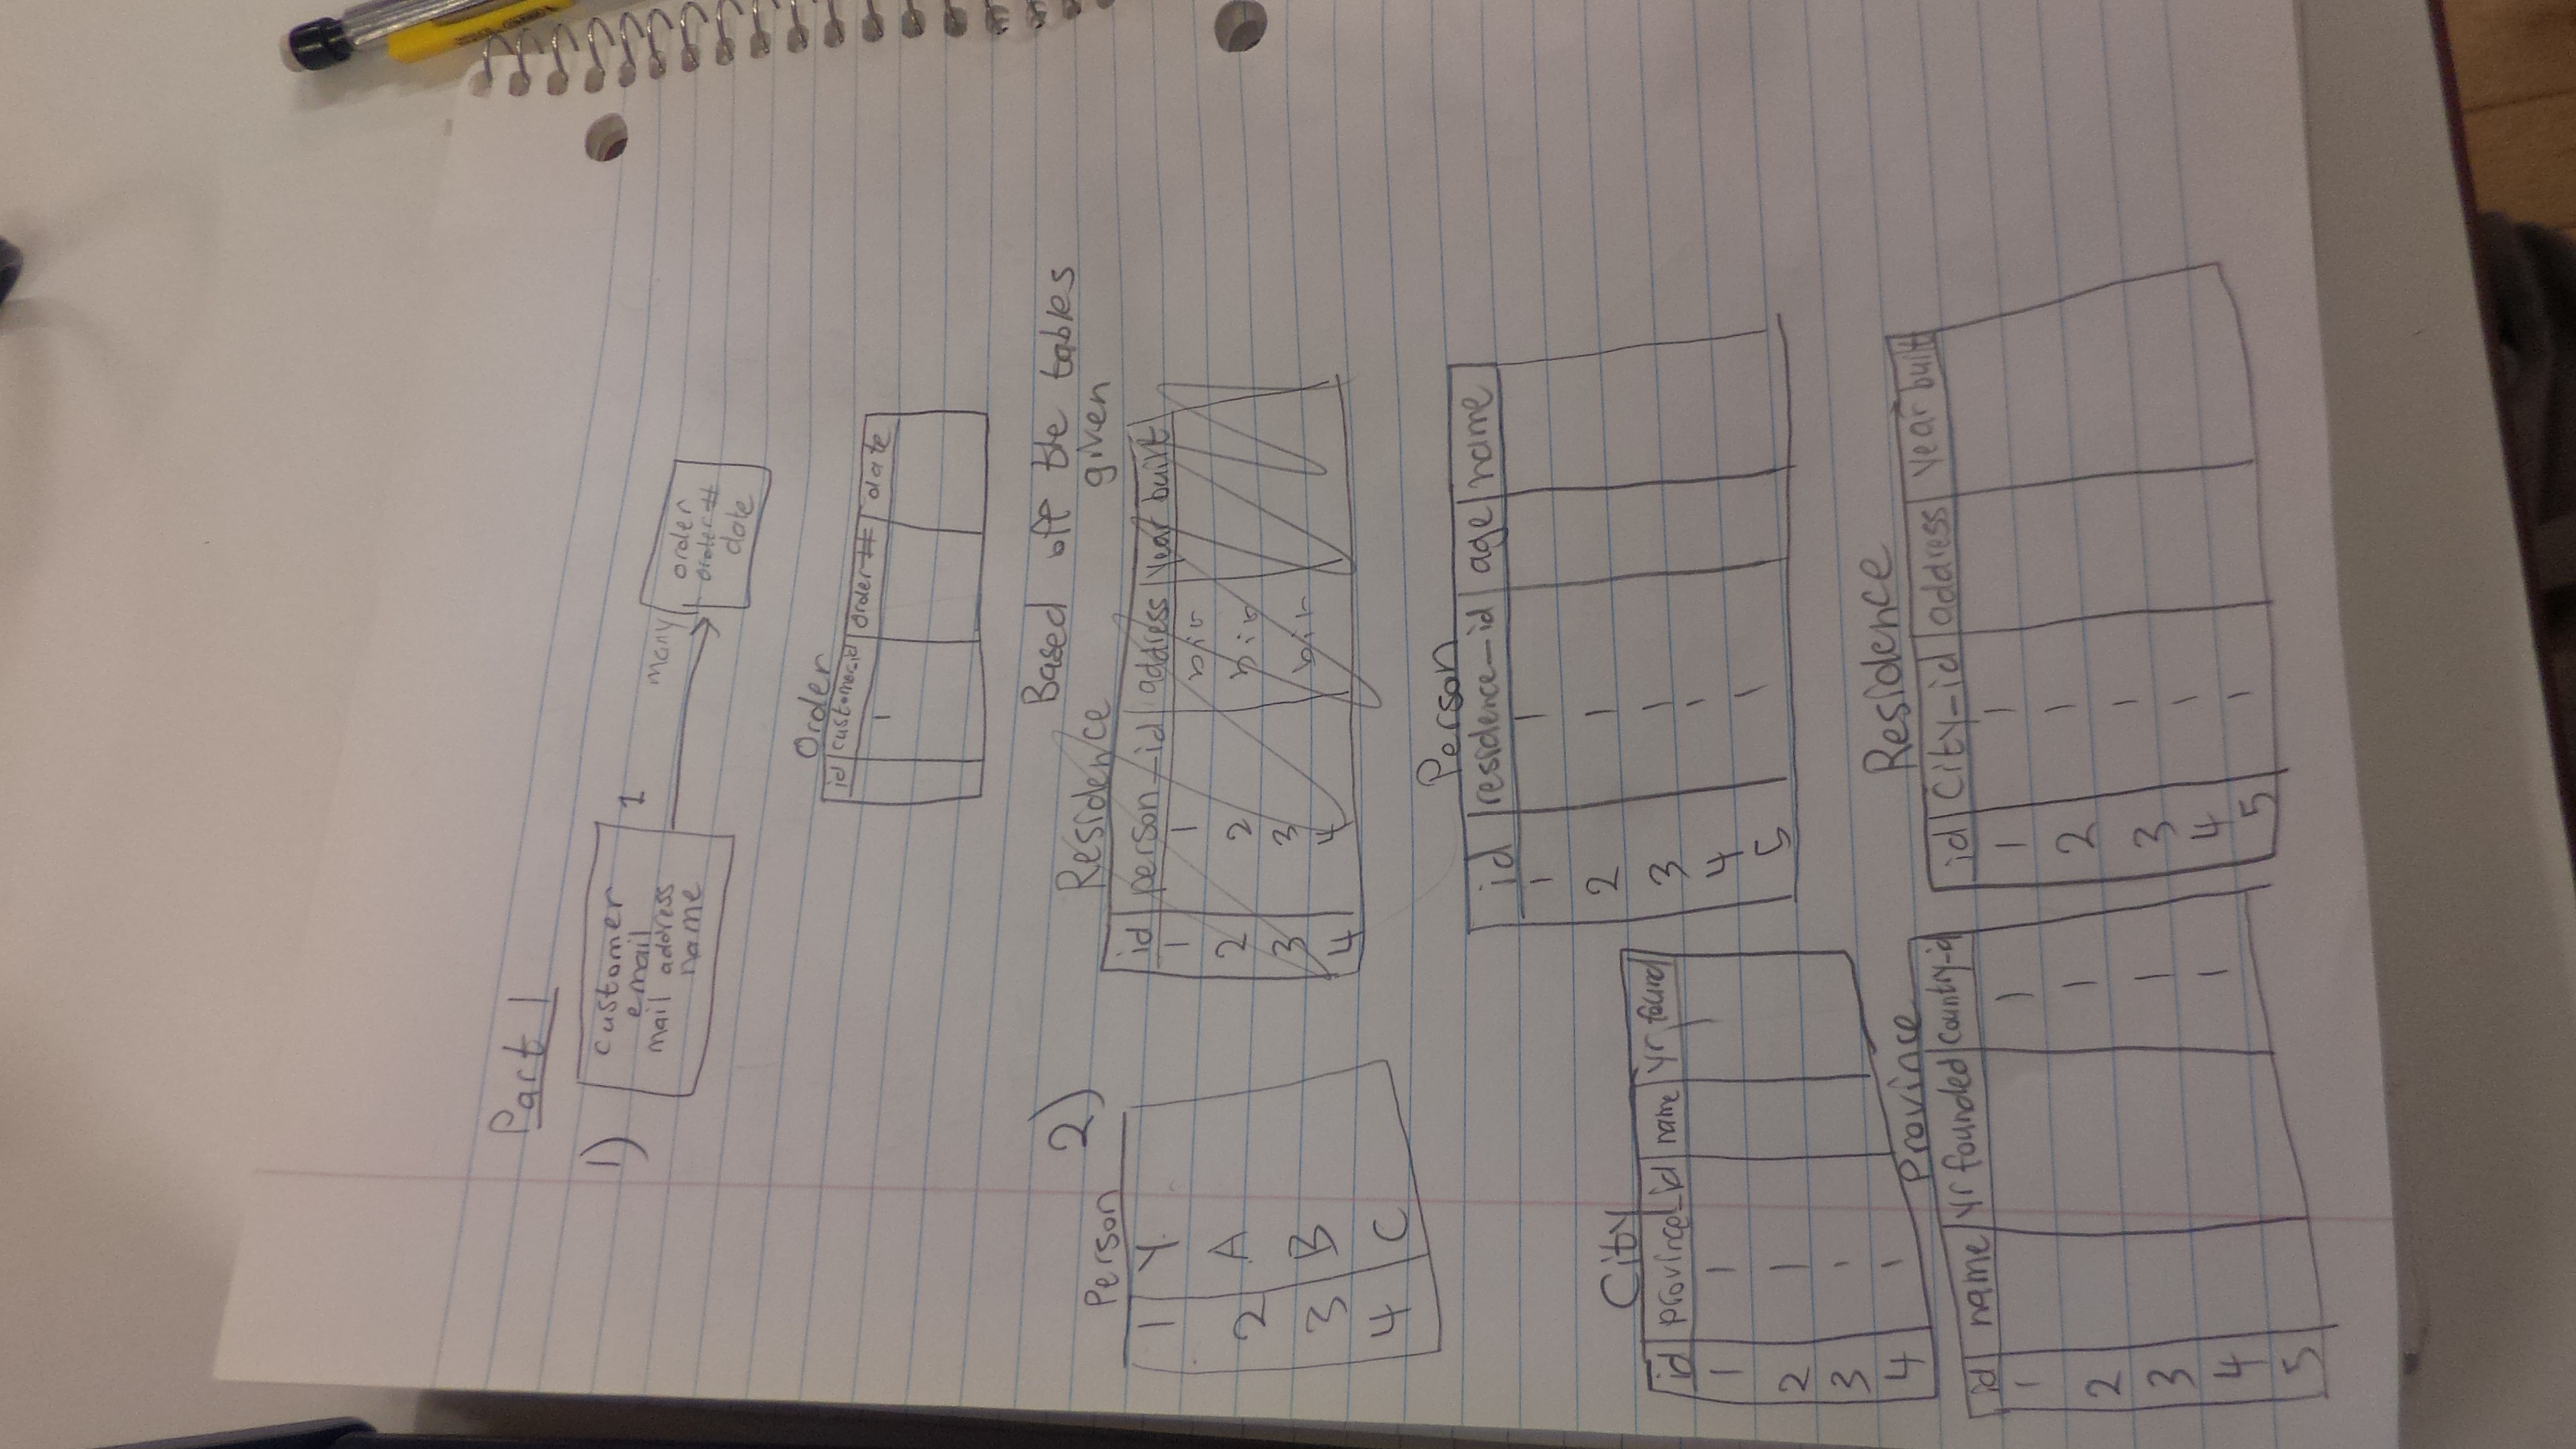 Part 1
1)
customer
email
mail address
name
1
many
order
order #
date
Order
id customer_id order # date
1
2)
Based off the tables
given
Person
1 Y
2 A
3 B
4 C
Residence
id person_id address year built
1 1
2 2
3 3
4 4
Person
id residence_id age name
1 1
2 1
3 1
4 1
5 1
City
id province_id name yr found
1 1
2 1
3 1
4 1
Province
id name yr founded country_id
1 1
2 1
3 1
4 1
5
Residence
id City_id address year built
1 1
2 1
3 1
4 1
5 1